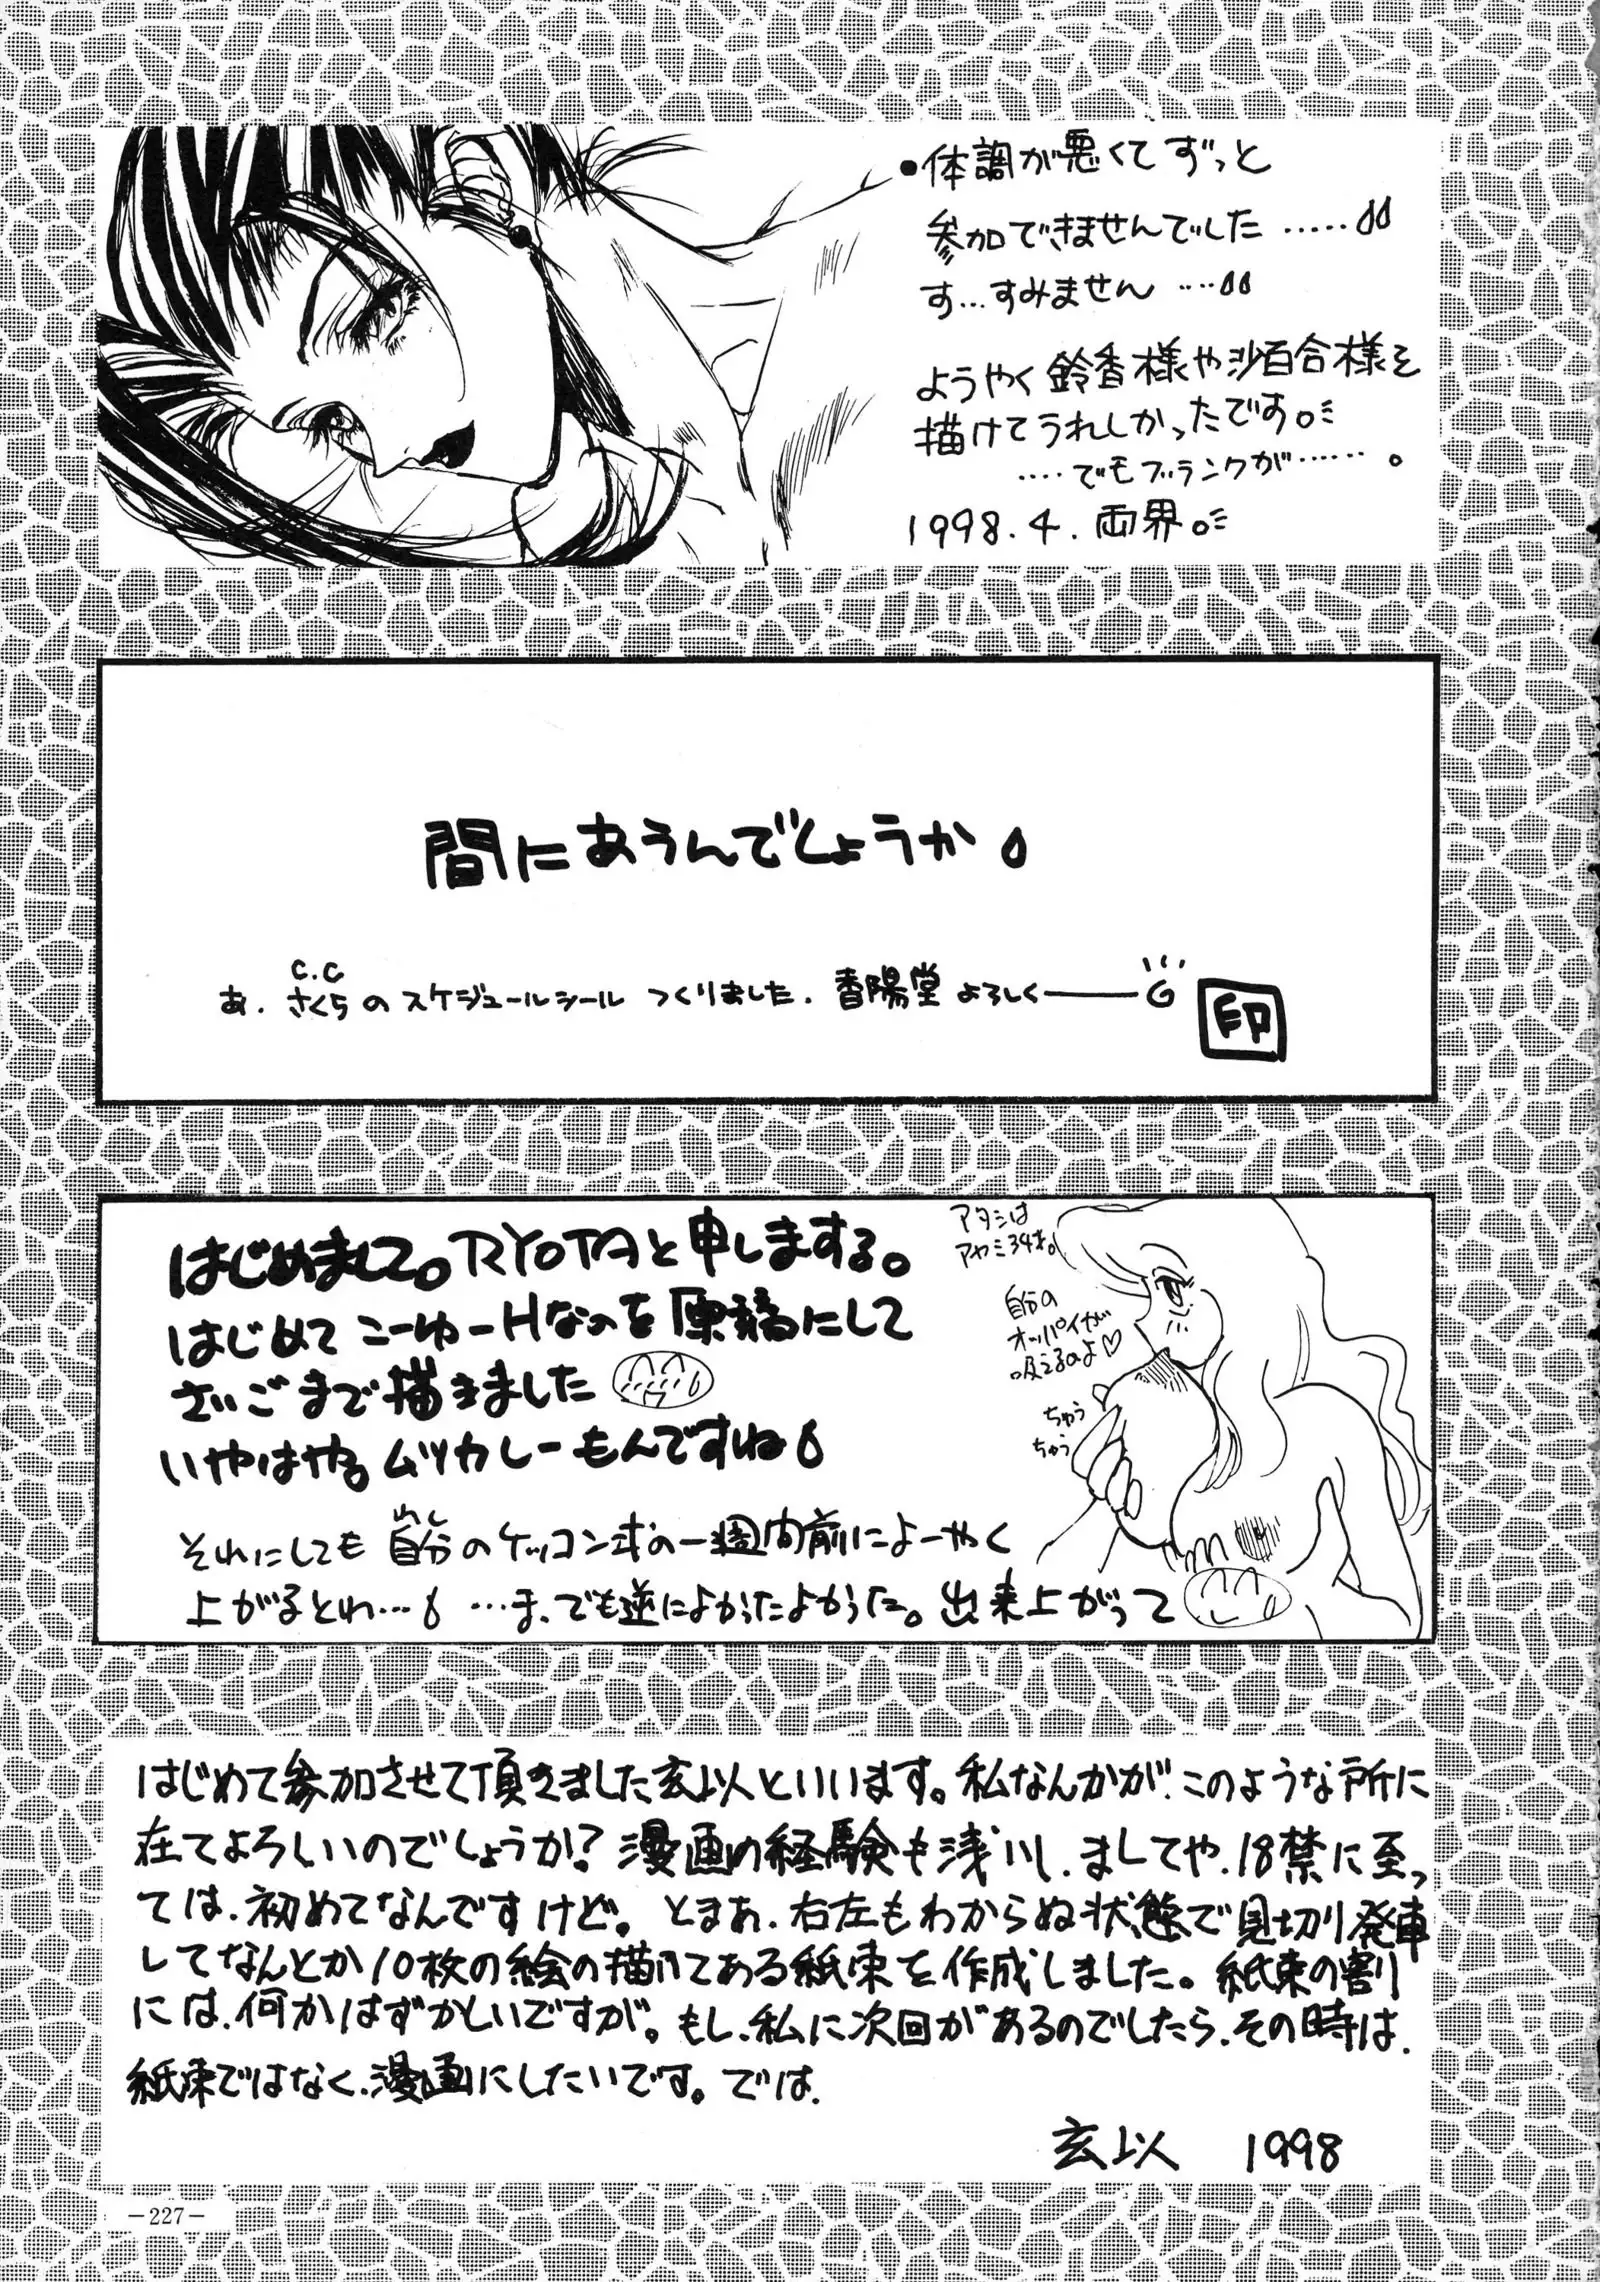 ●体調が悪くてずっと
参加できませんでした……
す…すみません……
ようやく鈴香様や沙百合様を
描けてうれしかったです。
……でもブランクが……。
1998.4.両界。
間にあうんでしょうか。
C.C
あ.さくらのスケジュールシール つくりました.香陽堂よろしく——
印
はじめまして。RYOTAと申しまする。
はじめてこーゆーHなのを原稿にして
さいごまで描きました
いやはや。ムツカしーもんですね
それにしても自分のケッコン式の一週間前によーやく
わし
上がるとわ… …ま、でも逆によかったよかった。出来上がって
アタシは
アヤミ34才。
自分の
オッパイが
吸えるのよ♡
ちゅう
ちゅう
はじめて参加させて頂きました玄以といいます。私なんかが、このような所に
在てよろしいのでしょうか?漫画の経験も浅いし、ましてや、18禁に至っ
ては、初めてなんですけど。とまあ、右左もわからぬ状態で見切り発車
してなんとか10枚の絵の描けてある紙束を作成しました。紙束の割り
には、何かはずかしいですが。もし、私に次回があるのでしたら、その時は、
紙束ではなく、漫画にしたいです。では、
玄以 1998
—227—